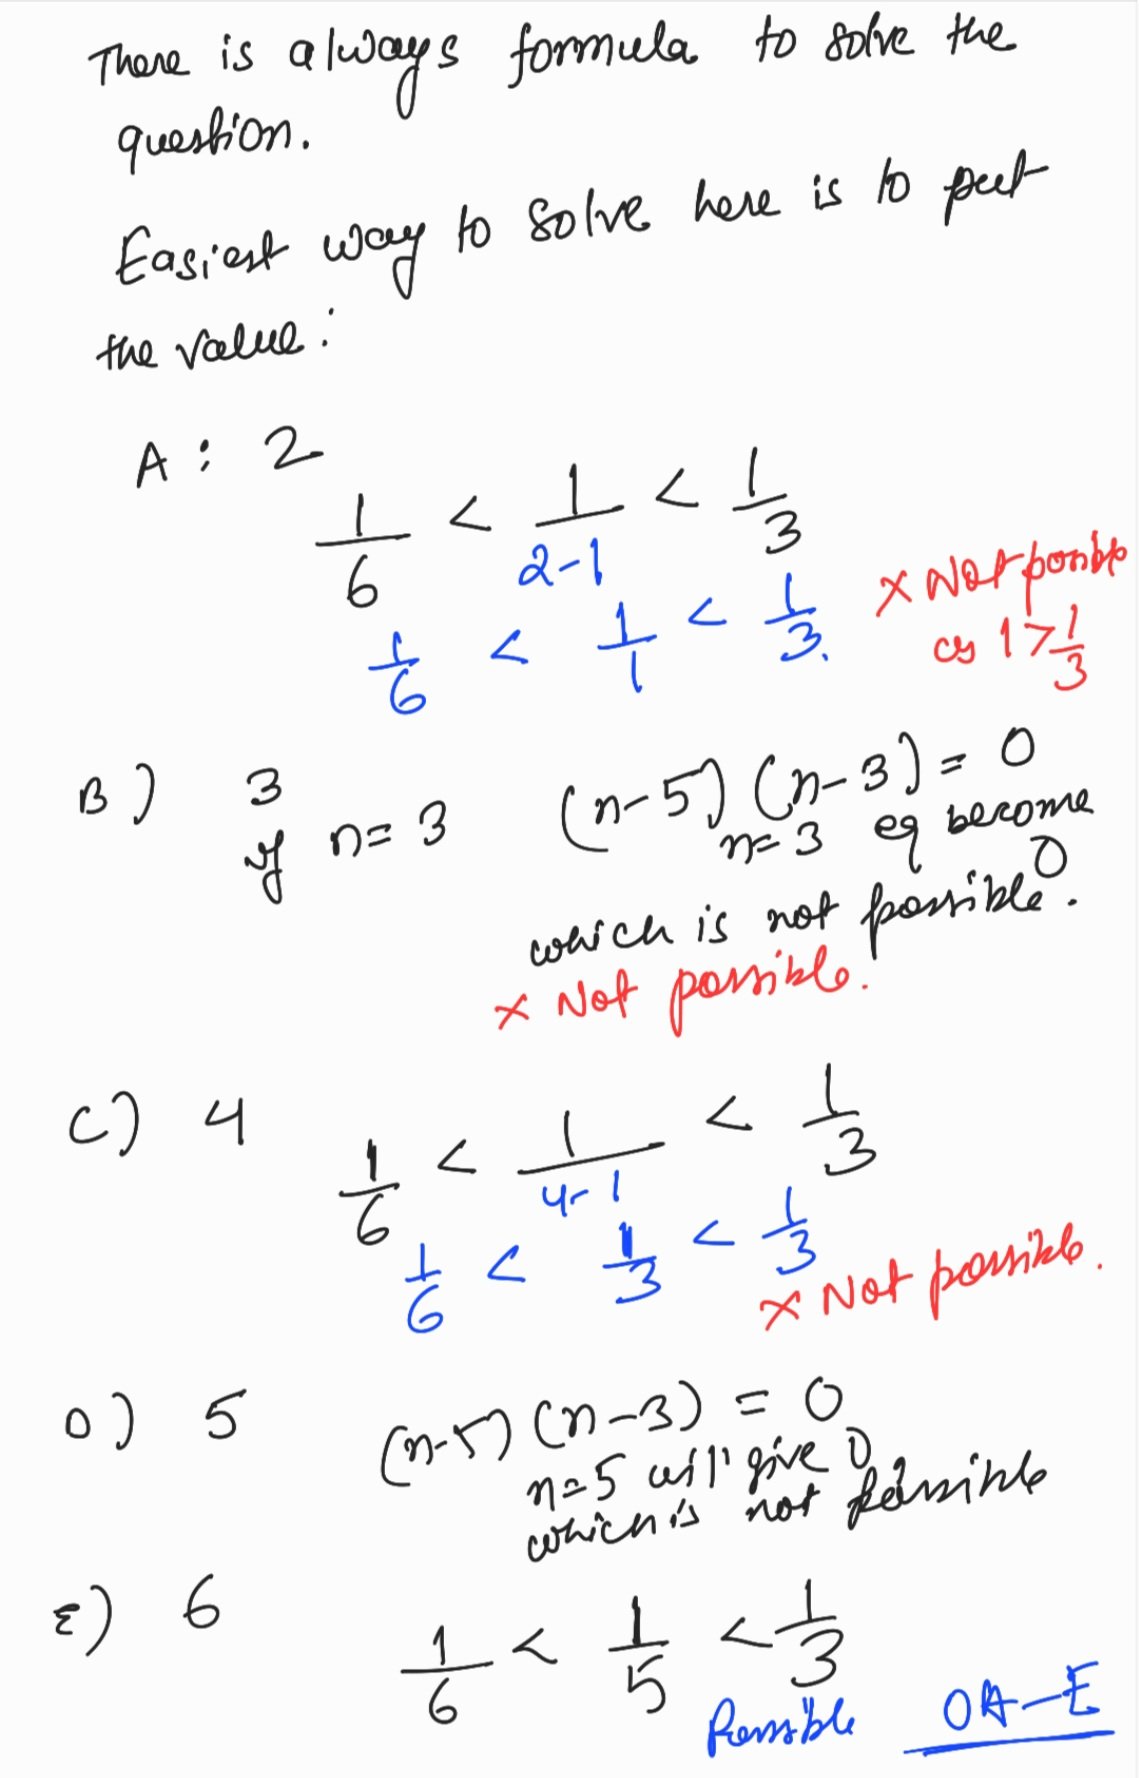 There is always formula to solve the
question.
Easiest way to solve here is to put
the value:
A: 2
1/6 < 1/(2-1) < 1/3
1/6 < 1/1 < 1/3.
x Not possible
as 1 > 1/3
B) 3
if n=3 (n-5)(n-3) = 0
n=3 eq become
0
which is not possible.
x Not possible.
C) 4
1/6 < 1/(4-1) < 1/3
1/6 < 1/3 < 1/3
x Not possible.
D) 5
(n-5)(n-3) = 0
n=5 will give 0
which is not possible
E) 6
1/6 < 1/5 < 1/3
Possible OA-E